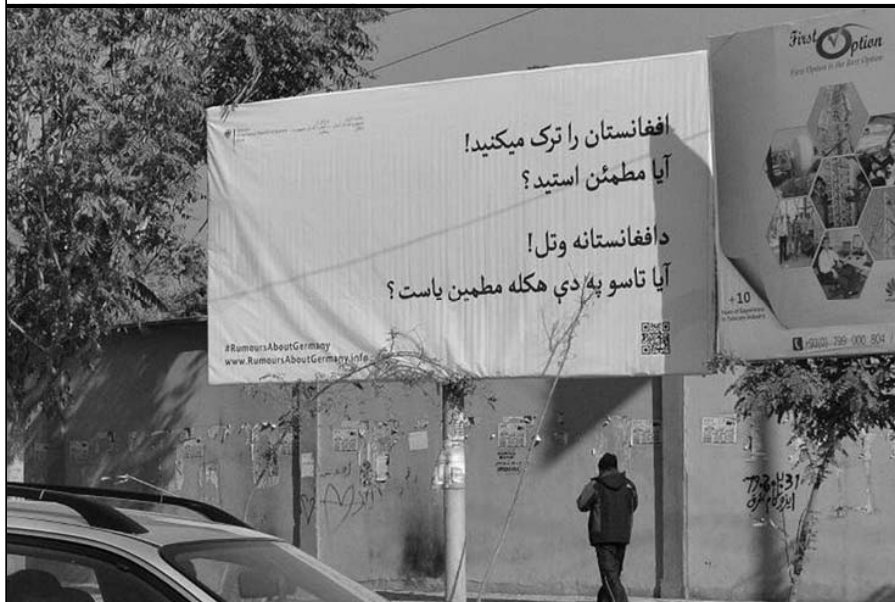 افغانستان را ترک میکنید!
آیا مطمئن استید؟
دافغانستانه وتل!
آیا تاسو په دې هکله مطمین یاست؟
#RumoursAboutGermany
www.RumoursAboutGermany.info
First Option
First Option is the Best Option
+10
Years of Experience
in Telecom Industry
+93(0) 799 000 804